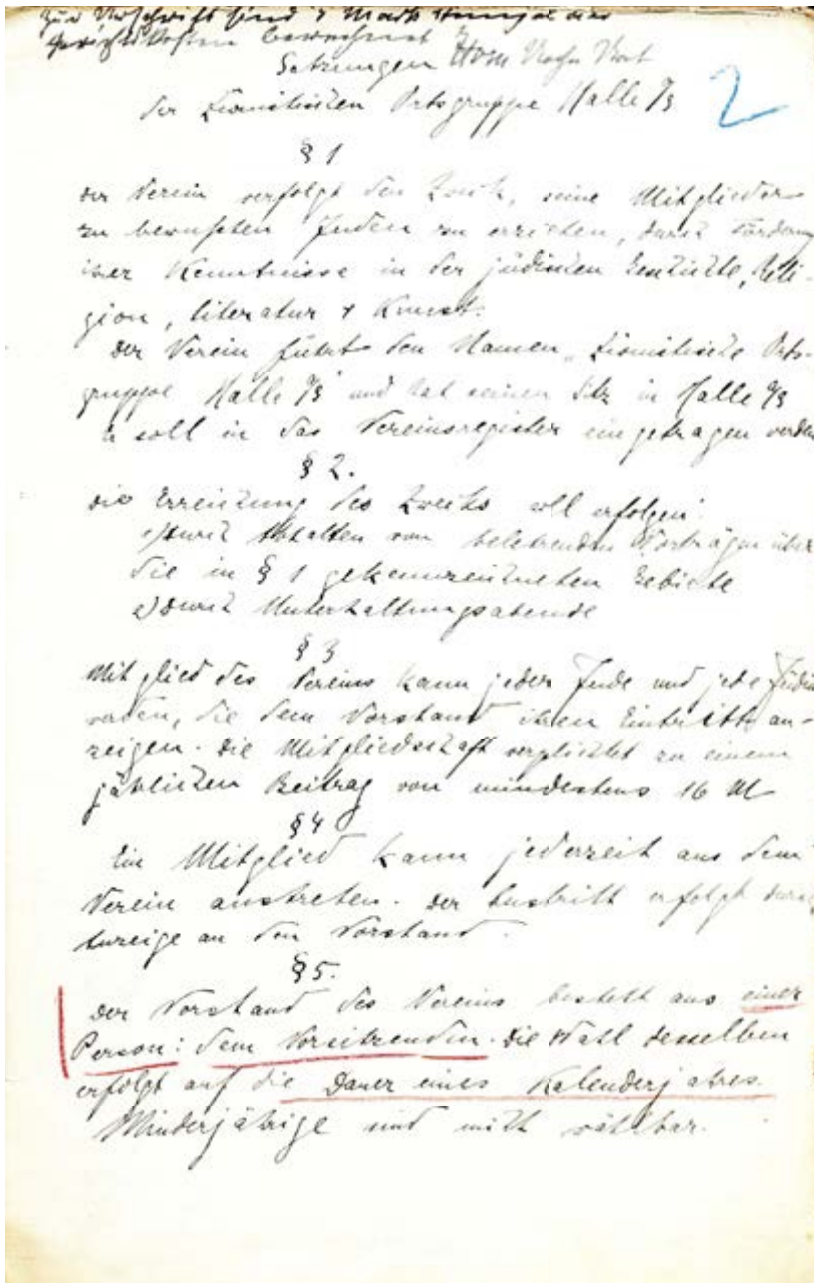 Zur Urschrift sind 3 Mark Stempel und
Gerichtskosten berechnet
Satzungen
der Zionistischen Ortsgruppe Halle a/S
2
§ 1
Der Verein verfolgt den Zweck, seine Mitglieder
zu bewußten Juden zu erziehen, durch Förderung
ihrer Kenntnisse in der jüdischen Geschichte, Reli-
gion, Literatur & Kunst.
Der Verein führt den Namen „Zionistische Orts-
gruppe Halle a/S" und hat seinen Sitz in Halle a/S
Er soll in das Vereinsregister eingetragen werden
§ 2.
Die Erreichung des Zwecks soll erfolgen:
1) durch Abhalten von belehrenden Vorträgen über
die in § 1 gekennzeichneten Gebiete
2) durch Unterhaltungsabende
§ 3
Mitglied des Vereins kann jeder Jude und jede Jüdin
werden, die dem Vorstand ihren Eintritt an-
zeigen. Die Mitgliedschaft verpflichtet zu einem
jährlichen Beitrag von mindestens 16 M
§ 4
Ein Mitglied kann jederzeit aus dem
Verein austreten. Der Austritt erfolgt durch
Anzeige an den Vorstand.
§ 5.
Der Vorstand des Vereins besteht aus einer
Person: dem Vorsitzenden. Die Wahl desselben
erfolgt auf die Dauer eines Kalenderjahres.
Minderjährige sind nicht wählbar.